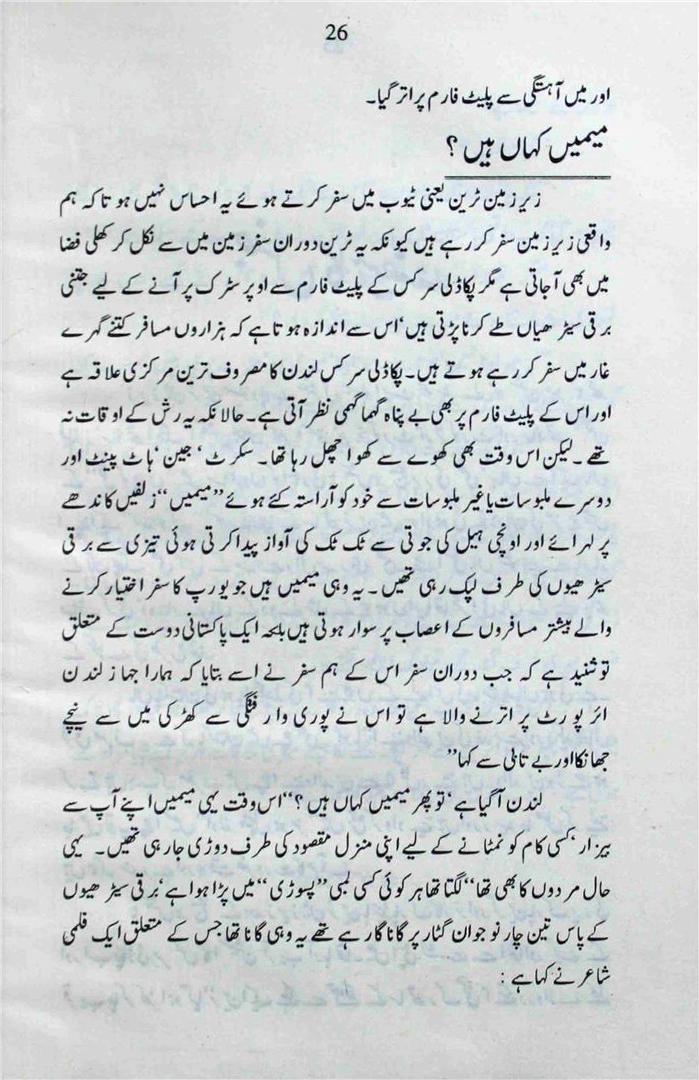 26
اور میں آہستگی سے پلیٹ فارم پر اتر گیا۔
میمیں کہاں ہیں ؟
زیر زمین ٹرین یعنی ٹیوب میں سفر کرتے ہوئے یہ احساس نہیں ہوتا کہ ہم
واقعی زیر زمین سفر کر رہے ہیں کیونکہ یہ ٹرین دوران سفر زمین میں سے نکل کر کھلی فضا
میں بھی آجاتی ہے مگر پکاڈلی سرکس کے پلیٹ فارم سے اوپر سڑک پر آنے کے لیے جتنی
برقی سیڑھیاں طے کرنا پڑتی ہیں‘ اس سے اندازہ ہوتا ہے کہ ہزاروں مسافر کتنے گہرے
غار میں سفر کر رہے ہوتے ہیں۔ پکاڈلی سرکس لندن کا مصروف ترین مرکزی علاقہ ہے
اور اس کے پلیٹ فارم پر بھی بے پناہ گہما گہمی نظر آتی ہے۔ حالانکہ یہ رش کے اوقات نہ
تھے ۔ لیکن اس وقت بھی کھوے سے کھوا چھل رہا تھا۔ سکرٹ ‘ جین ‘ ہاٹ پینٹ اور
دوسرے ملبوسات یا غیر ملبوسات سے خود کو آراستہ کئے ہوئے ’’میمیں‘‘ زلفیں کاندھے
پر لہرائے اور اونچی ہیل کی جوتی سے ٹک ٹک کی آواز پیدا کرتی ہوئی تیزی سے برقی
سیڑھیوں کی طرف لپک رہی تھیں ۔ یہ وہی میمیں ہیں جو یورپ کا سفر اختیار کرنے
والے بیشتر مسافروں کے اعصاب پر سوار ہوتی ہیں بلکہ ایک پاکستانی دوست کے متعلق
تو شنید ہے کہ جب دوران سفر اس کے ہم سفر نے اسے بتایا کہ ہمارا جہاز لندن
ائر پورٹ پر اترنے والا ہے تو اس نے پوری وارفتگی سے کھڑکی میں سے نیچے
جھانکا اور بے تابی سے کہا’’
لندن آگیا ہے‘ تو پھر میمیں کہاں ہیں ؟‘‘ اس وقت یہی میمیں اپنے آپ سے
بیزار‘ کسی کام کو نمٹانے کے لیے اپنی منزل مقصود کی طرف دوڑی جارہی تھیں۔ یہی
حال مردوں کا بھی تھا‘‘ لگتا تھا ہر کوئی کسی لمبی ’’پسوڑی‘‘ میں پڑا ہوا ہے‘ برقی سیڑھیوں
کے پاس تین چار نوجوان گٹار پر گانا گا رہے تھے یہ وہی گانا تھا جس کے متعلق ایک فلمی
شاعر نے کہا ہے :